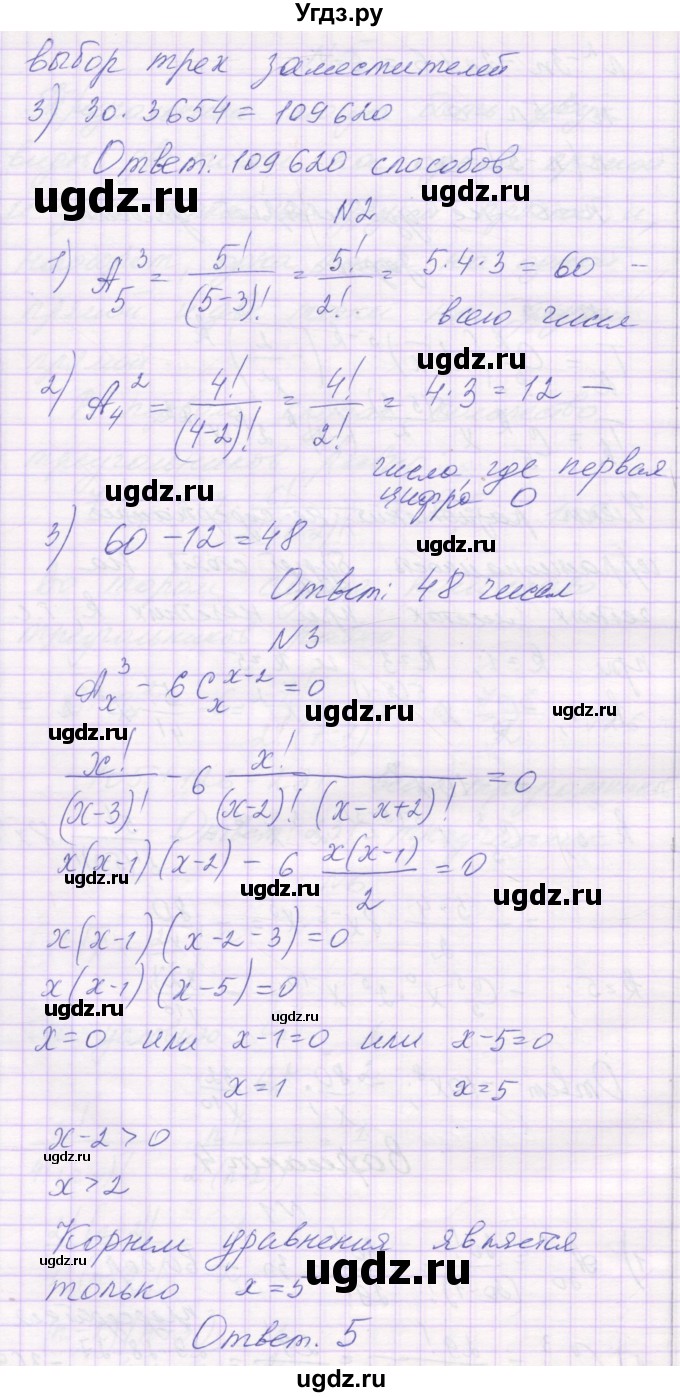 Угдз.ру
выбор трех заместителей
3) 30·3654 = 109620
Ответ: 109620 способов
ugdz.ru ugdz.ru
N2
1) A₅³ = 5!/(5-3)! = 5!/2! = 5·4·3 = 60 –
всего чисел
ugdz.ru
2) A₄² = 4!/(4-2)! = 4!/2! = 4·3 = 12 —
число, где первая
ugdz.ru цифра 0
3) 60 – 12 = 48
ugdz.ru
Ответ: 48 чисел
N3
Aₓ³ – 6Cₓˣ⁻² = 0
ugdz.ru ugdz.ru ugdz.ru
x!/(x-3)! – 6 x!/((x-2)!(x-x+2)!) = 0
x(x-1)(x-2) – 6 x(x-1)/2 = 0
ugdz.ru ugdz.ru ugdz.ru
x(x-1)(x-2-3) = 0
x(x-1)(x-5) = 0
ugdz.ru ugdz.ru
x=0 или x-1=0 или x-5=0
x=1 x=5
x-2>0
ugdz.ru
x>2
Корнем уравнения является
ugdz.ru ugdz.ru
только x=5
Ответ. 5
ugdz.ru